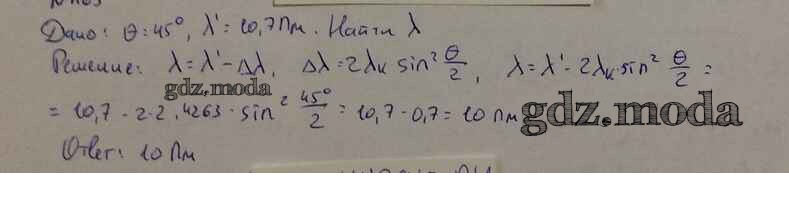 Дано: θ = 45°, λ' = 10,7 Пм. Найти λ
Решение: λ = λ' - Δλ, Δλ = 2λк sin² θ/2, λ = λ' - 2λк·sin² θ/2 =
gdz.moda
= 10,7 - 2·2,4263·sin² 45°/2 = 10,7 - 0,7 = 10 пм
gdz.moda
Ответ: 10 Пм